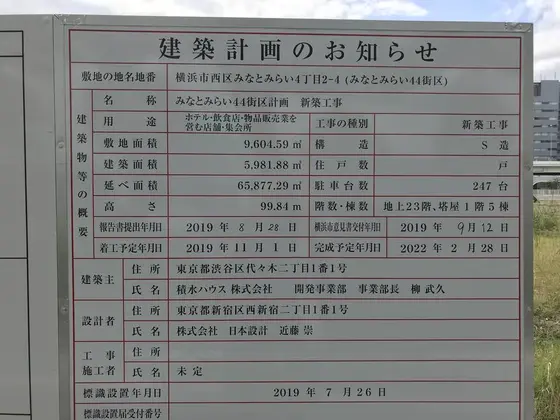 建築計画のお知らせ
敷地の地名地番 横浜市西区みなとみらい4丁目2-4 (みなとみらい44街区)
建築物等の概要
名称 みなとみらい44街区計画 新築工事
用途 ホテル・飲食店・物品販売業を営む店舗・集会所 工事の種別 新築工事
敷地面積 9,604.59㎡ 構造 S造
建築面積 5,981.88㎡ 住戸数 戸
延べ面積 65,877.29㎡ 駐車台数 247台
高さ 99.84m 階数・棟数 地上23階、塔屋1階5棟
報告書提出年月日 2019年8月28日 横浜市意見書交付年月日 2019年9月12日
着工予定年月日 2019年11月1日 完成予定年月日 2022年2月28日
建築主 住所 東京都渋谷区代々木二丁目1番1号
氏名 積水ハウス株式会社 開発事業部 事業部長 柳 武久
設計者 住所 東京都新宿区西新宿二丁目1番1号
氏名 株式会社 日本設計 近藤 崇
工事施工者 住所
氏名 未定
標識設置年月日 2019年7月26日
標識設置届受付番号